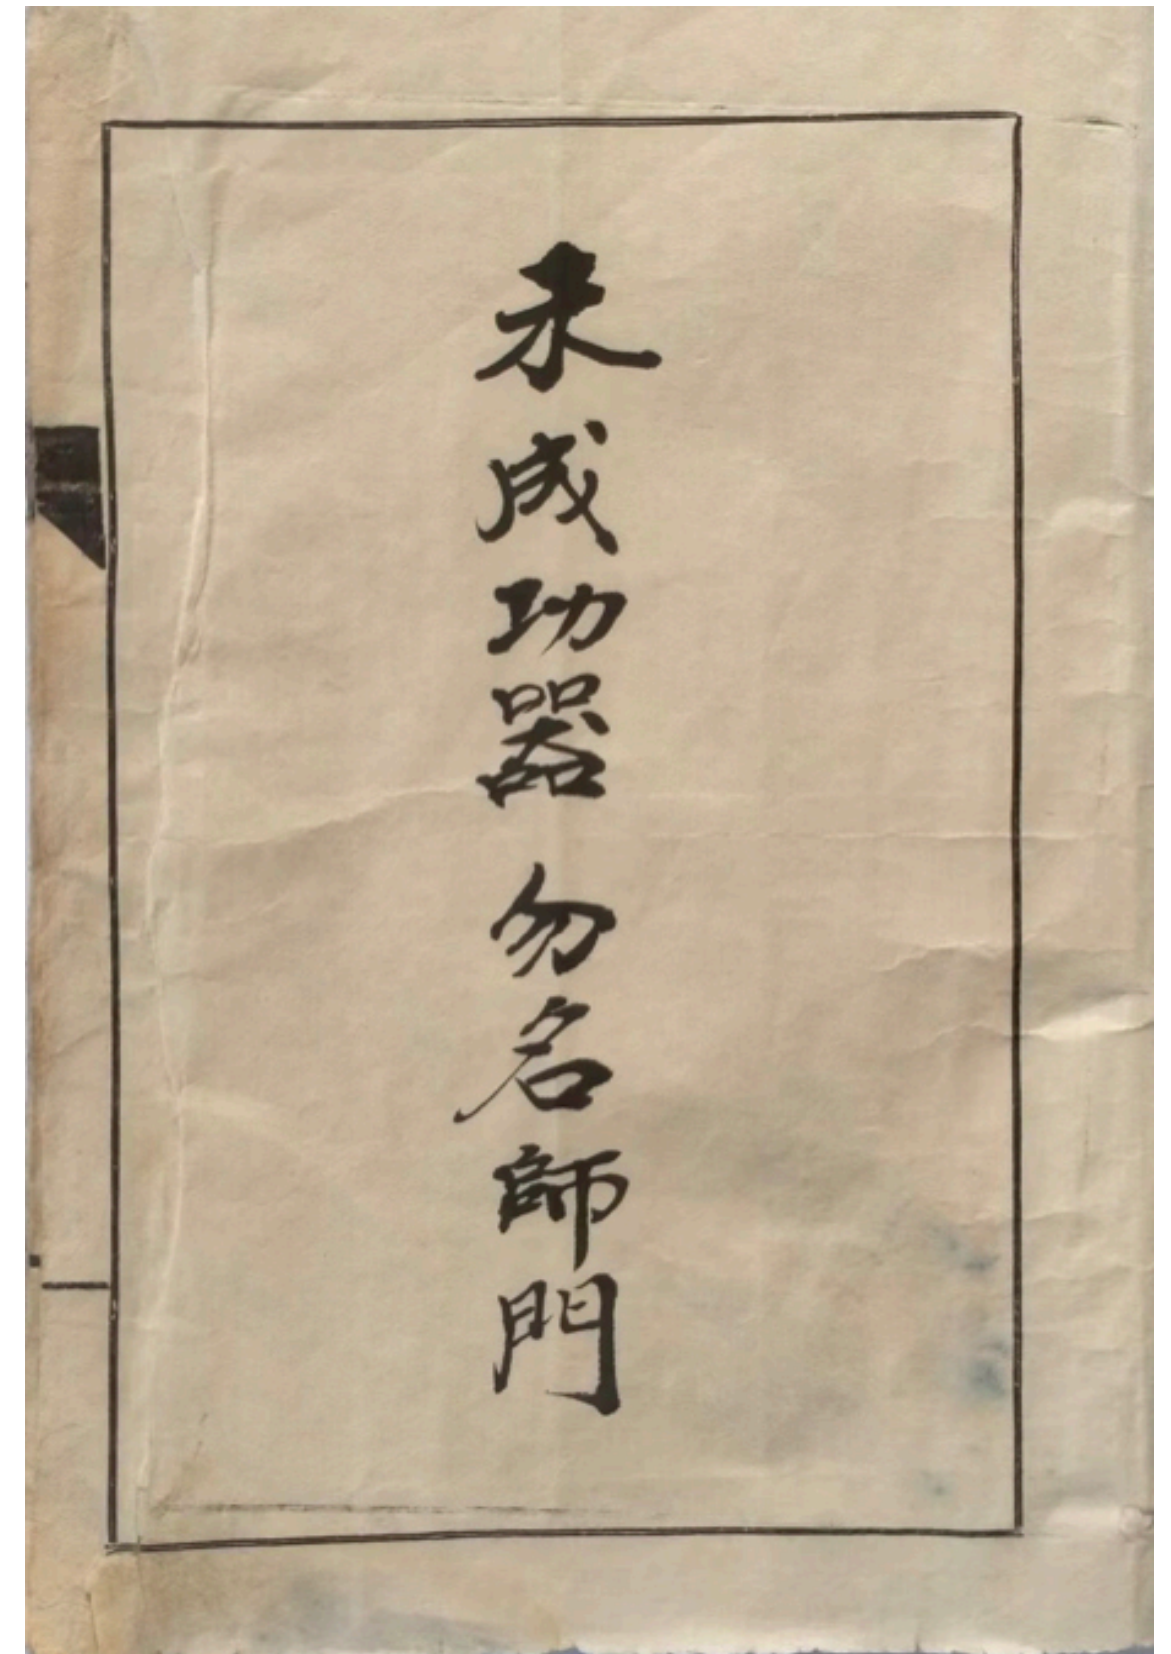 未成功器 勿名師門